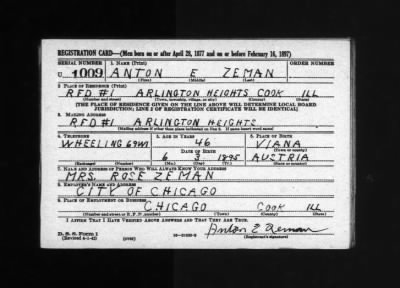 REGISTRATION CARD—(Men born on or after April 28, 1877 and on or before February 16, 1897)
SERIAL NUMBER 1. NAME (Print) ORDER NUMBER
U 1009 ANTON E ZEMAN
(First) (Middle) (Last)
2. PLACE OF RESIDENCE (Print)
RFD #1 ARLINGTON HEIGHTS COOK ILL
(Number and street) (Town, township, village, or city) (County) (State)
[THE PLACE OF RESIDENCE GIVEN ON THE LINE ABOVE WILL DETERMINE LOCAL BOARD
JURISDICTION; LINE 2 OF REGISTRATION CERTIFICATE WILL BE IDENTICAL]
3. MAILING ADDRESS
RFD #1 ARLINGTON HEIGHTS
[Mailing address if other than place indicated on line 2. If same insert word same]
4. TELEPHONE 5. AGE IN YEARS 6. PLACE OF BIRTH
WHEELING 69W1 46 VIANA
DATE OF BIRTH (Town or county)
6 3 1895 AUSTRIA
(Exchange) (Number) (Mo.) (Day) (Yr.) (State or country)
7. NAME AND ADDRESS OF PERSON WHO WILL ALWAYS KNOW YOUR ADDRESS
MRS. ROSE ZEMAN
8. EMPLOYER'S NAME AND ADDRESS
CITY OF CHICAGO
9. PLACE OF EMPLOYMENT OR BUSINESS
CHICAGO COOK ILL
(Number and street or R. F. D. number) (Town) (County) (State)
I AFFIRM THAT I HAVE VERIFIED ABOVE ANSWERS AND THAT THEY ARE TRUE.
D. S. S. Form 1 Anton E Zeman
(Revised 4-1-42) (over) (Registrant's signature)